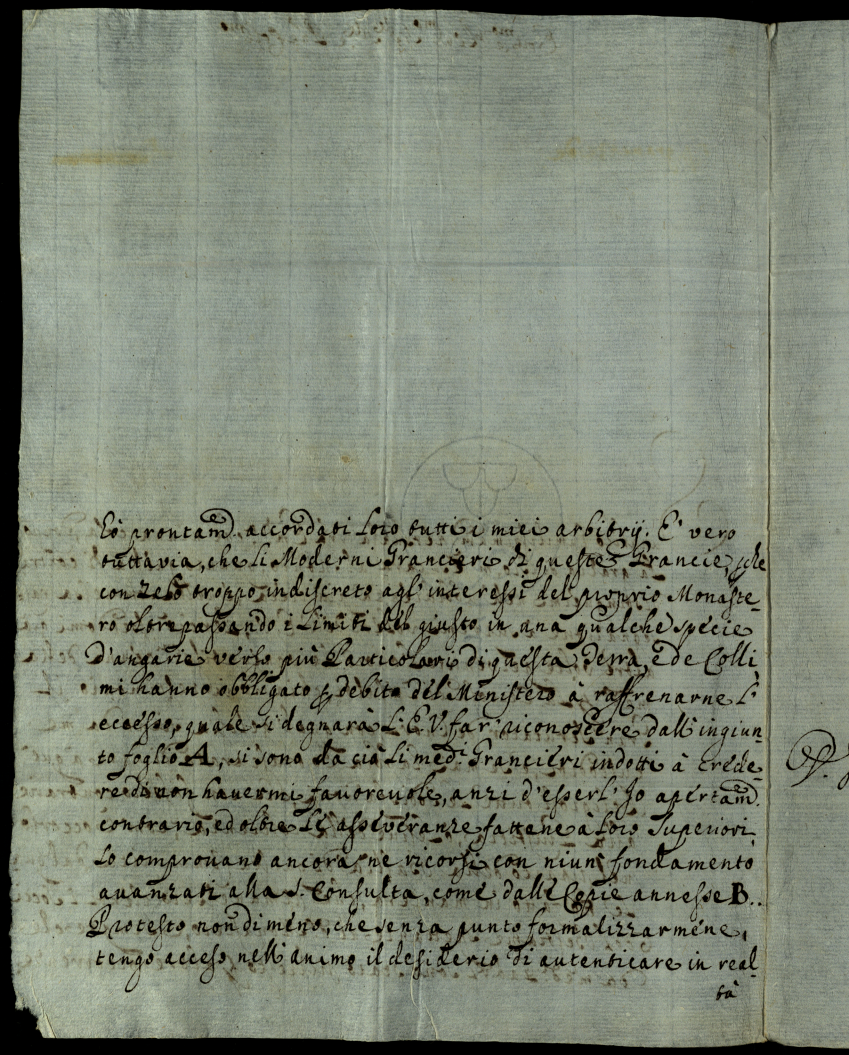 hò prontam.e accordati Loro tutti i miei arbitrij. E' vero
tuttavia, che Li Moderni Grancieri di queste Grancie, che
con zelo troppo indiscreto agl' interessi del proprio Monaste-
ro oltrepassando i Limiti del giusto in una qualche specie
d'angarie verso più Particolari di questa Terra, e de Colli
mi hanno obbligato p debito del Ministero à raffrenarne L'
eccesso, quale si degnarà L' E. V. far riconoscere dall' ingiun-
to foglio A, si sono da ciò Li med.i Grancieri indotti à crede-
re di non havermi favorevole, anzi d'esserL' Io apertam.e
contrario, ed oltre Le asseveranze fattane à Loro Superiori
Lo comprovano ancora ne ricorsi con niun fondamento
avanzati alla S. Consulta, come dalle Copie annesse B..
Protesto nondimeno, che senza punto formalizzarmene,
tengo acceso nell' animo il desiderio di autenticare in real-
tà